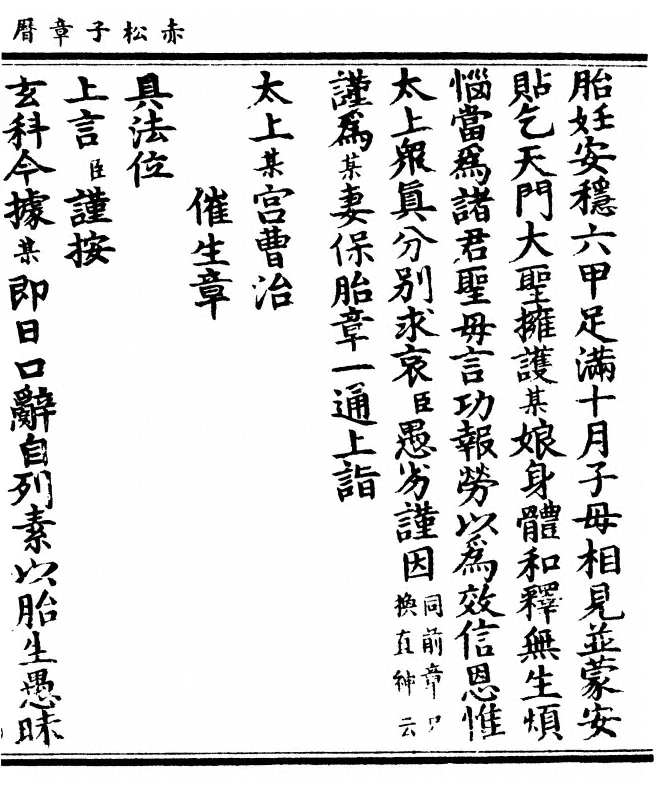 赤松子章曆
胎妊安穩六甲足滿十月子母相見並蒙安
貼乞天門大聖擁護某娘身體和釋無生煩
惱當爲諸君聖母言功報勞以爲效信恩惟
太上衆真分別求哀臣愚劣謹因同前章換直紳云
謹爲某妻保胎章一通上詣
太上某宮曹治
催生章
具法位
上言臣謹按
玄科今據某即日口辭自列素以胎生愚昧